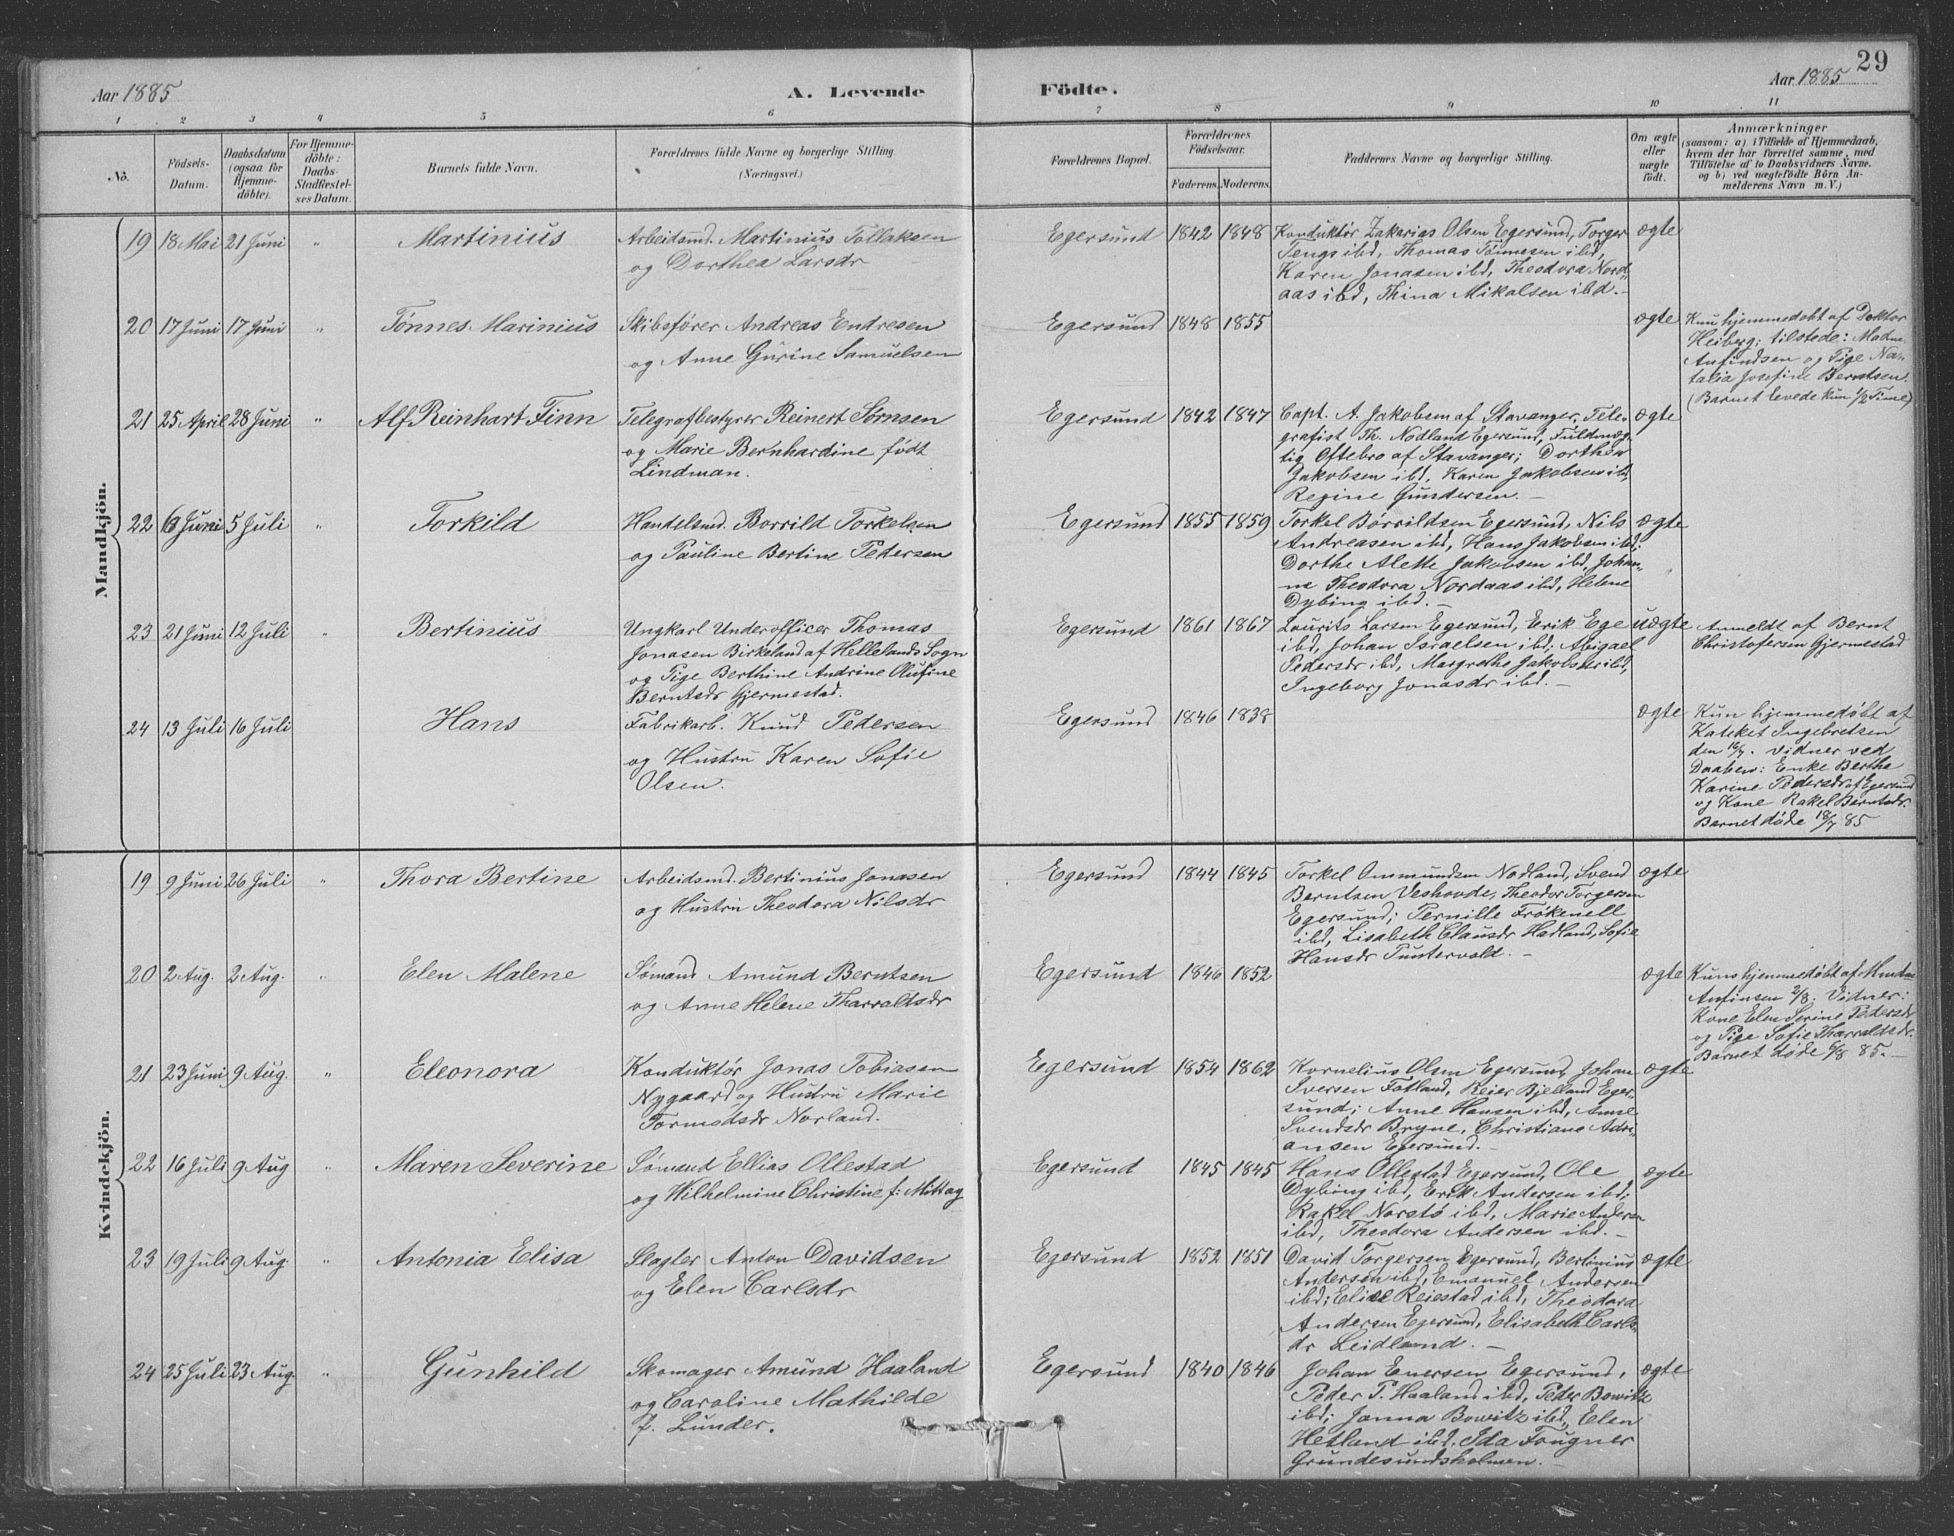 29
Aar 1885
A. Levende
Födte.
Aar 1885
1 2 3 4 5 6 7 8 9 10 11
No.
Födsels-
Datum.
Daabsdatum
(ogsaa for
Hjemme-
döbte).
For Hjemme-
döbte:
Daabs-
Stadfæstel-
ses Datum.
Barnets fulde Navn.
Forældrenes fulde Navne og borgerlige Stilling
(Næringsvei.)
Forældrenes Bopæl.
Forældrenes
Födselsaar.
Faderens. Moderens.
Faddernes Navne og borgerlige Stilling.
Om ægte
eller
uægte
födt.
Anmærkninger
(saasom: a) i Tilfælde af Hjemmedaab,
hvem der har forrettet samme, med
Tilföielse af to Daabsvidners Navne.
og b) ved uægtefödte Börn An-
melderens Navn m. V.)
Mandkjön.
19 18 Mai 21 Juni " Martinius
Arbeidsmd. Martinius Tollaksen
og Dorthea Larsdr
Egersund 1842 1848
Konduktør Zakarias Olsen Egersund, Torger
Tengs ibd, Thomas Tønnesen ibd,
Karen Jonasen ibd, Theodora Nord-
aas ibd, Thina Mikalsen ibd. –
ægte
20 17 Juni 17 Juni " Tønnes Marinius
Skibsfører Andreas Endresen
og Anne Gurine Samuelsen
Egersund 1848 1855
ægte
Kun hjemmedøbt af Doktor
Heiberg; tilstede: Madm.
Anfindsen og Pige Na-
talia Josefine Berntsen.
(Barnet levede kun 1/2 Time)
21 25 April 28 Juni " Alf Reinhart Finn
Telegrafbestyrer Reinert Sørnsen
og Marie Bernhardine født
Lindman.
Egersund 1842 1847
Capt. A. Jakobsen af Stavanger, Tele-
grafist Th. Nodland Egersund, Fuldmæg-
tig Oftebro af Stavanger; Dorthea
Jakobsen ibd, Karen Jakobsen ibd,
Regine Gundersen. –
ægte
22 6 Juni 5 Juli " Torkild
Handelsmd. Borrild Torkelsen
og Pauline Bertine Petersen
Egersund 1855 1859
Torkel Børrildsen Egersund, Nils
Andreasen ibd, Hans Jakobsen ibd;
Dorthe Alette Jakobsen ibd, Johan-
ne Theodora Nordaas ibd, Helene
Dybing ibd. –
ægte
23 21 Juni 12 Juli " Bertinius
Ungkarl Underofficer Thomas
Jonasen Birkeland af Hellelands Sogn
og Pige Berthine Andrine Olufine
Berntsdr Gjermestad.
Egersund 1861 1867
Lourits Larsen Egersund, Erik Ege
ibd, Johan Israelsen ibd; Abigael
Pedersdr ibd, Margrethe Jakobsdr ibd,
Ingeborg Jonasdr ibd. –
uægte
Anmeldt af Bernt
Christofersen Gjermestad
24 13 Juli 16 Juli Hans
Fabrikarb. Knud Pedersen
og Hustru Karen Sofie
Olsen.
Egersund 1846 1838
ægte
Kun hjemmedøbt af
Kateket Ingebretsen
den 16/7. Vidner ved
Daaben: Enke Berthe
Karine Pedersdr af Egersund
og Kone Rakel Berntsdr.
Barnet døde 18/7 85
Kvindekjön.
19 9 Juni 26 Juli " Thora Bertine
Arbeidsmd. Bertinius Jonasen
og Hustru Theodora Nilsdr
Egersund 1844 1845
Torkel Ommundsen Nodland, Svend
Berntsen Veshovde, Theodor Torgersen
Egersund; Pernille Frøkenell
ibd, Lisabeth Clausdr Hadland, Sofie
Hansdr Puntervold. –
ægte
20 2 Aug. 2 Aug. " Elen Malene
Sømand Amund Berntsen
og Anne Helene Tharraldsdr
Egersund 1846 1852
ægte
Kuns hjemmedøbt af
Anfinsen 2/8. Vidner:
Kone Elen Serine Pedersdr
og Pige Sofie Tharraldsdr.
Barnet døde 6/8 85. –
21 23 Juni 9 Aug. " Eleonora
Konduktør Jonas Tobiasen
Nygaard og Hustru Marie
Tormodsdr Norland.
Egersund 1854 1862
Kornelius Olsen Egersund, Johan
Iversen Fotland, Reier Bjelland Eger-
sund; Anne Hansen ibd, Anne
Svendsdr Bryne, Christiane Adri-
ansen Egersund. –
ægte
22 16 Juli 9 Aug " Maren Severine
Sømand Ellias Ollestad
og Wilhelmine Christine f: Mittag
Egersund 1845 1845
Hans Ollestad Egersund, Ole
Dybing ibd, Erik Andersen ibd;
Rakel Norstø ibd, Marie Andersen
ibd, Theodora Andersen ibd. –
ægte
23 19 Juli 9 Aug. " Antonia Elisa
Slagter Anton Davidsen
og Elen Carlsdr
Egersund 1852 1851
David Torgersen Egersund, Bertinius
Andersen ibd, Emanuel Andersen
ibd; Elise Reiestad ibd, Theodora
Andersen Egersund, Elisabeth Carls-
dr Leidland. –
ægte
24 25 Juli 23 Aug. " Gunhild
Skomager Amund Haaland
og Caroline Mathilde
f. Lunder.
Egersund 1840 1846
Johan Enersen Egersund,
Peder P. Haaland ibd, Peder Bowitz
ibd; Janna Bowitz ibd, Elen
Hetland ibd, Ida Fougner
Grundesundsholmen. –
ægte